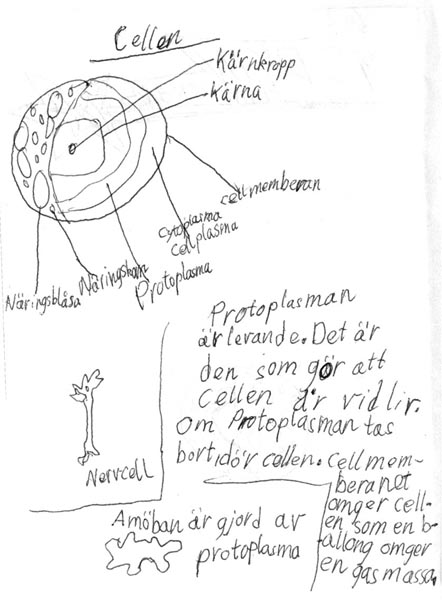 Cellen
Kärnkropp
Kärna
cellmemberan
cytoplasma
cellplasma
Protoplasma
Näringskorn
Näringsblåsa
Protoplasman
är levande. Det är
den som gör att
cellen är vid liv.
Om Protoplasman tas
bort dör cellen. cellmem-
beranet
omger cell-
en som en b-
allong omger
en gasmassa.
Nervcell
Amöban är gjord av
protoplasma